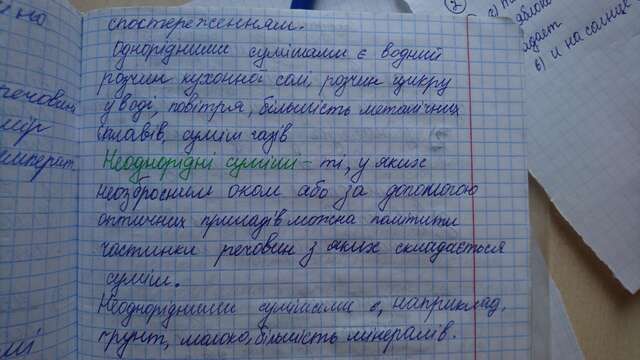 спостереженням.
Однорідними сумішами є водний
розчин кухонної солі, розчин цукру
у воді, повітря, більшість металічних
сплавів, суміш газів
Неоднорідні суміші – ті, у яких
неозброєним оком або за допомогою
оптичних приладів можна помітити
частинки речовин з яких складається
суміш.
Неоднорідними сумішами є, наприклад,
ґрунт, молоко, більшість мінералів.
2
яблоко
в) и на солнце